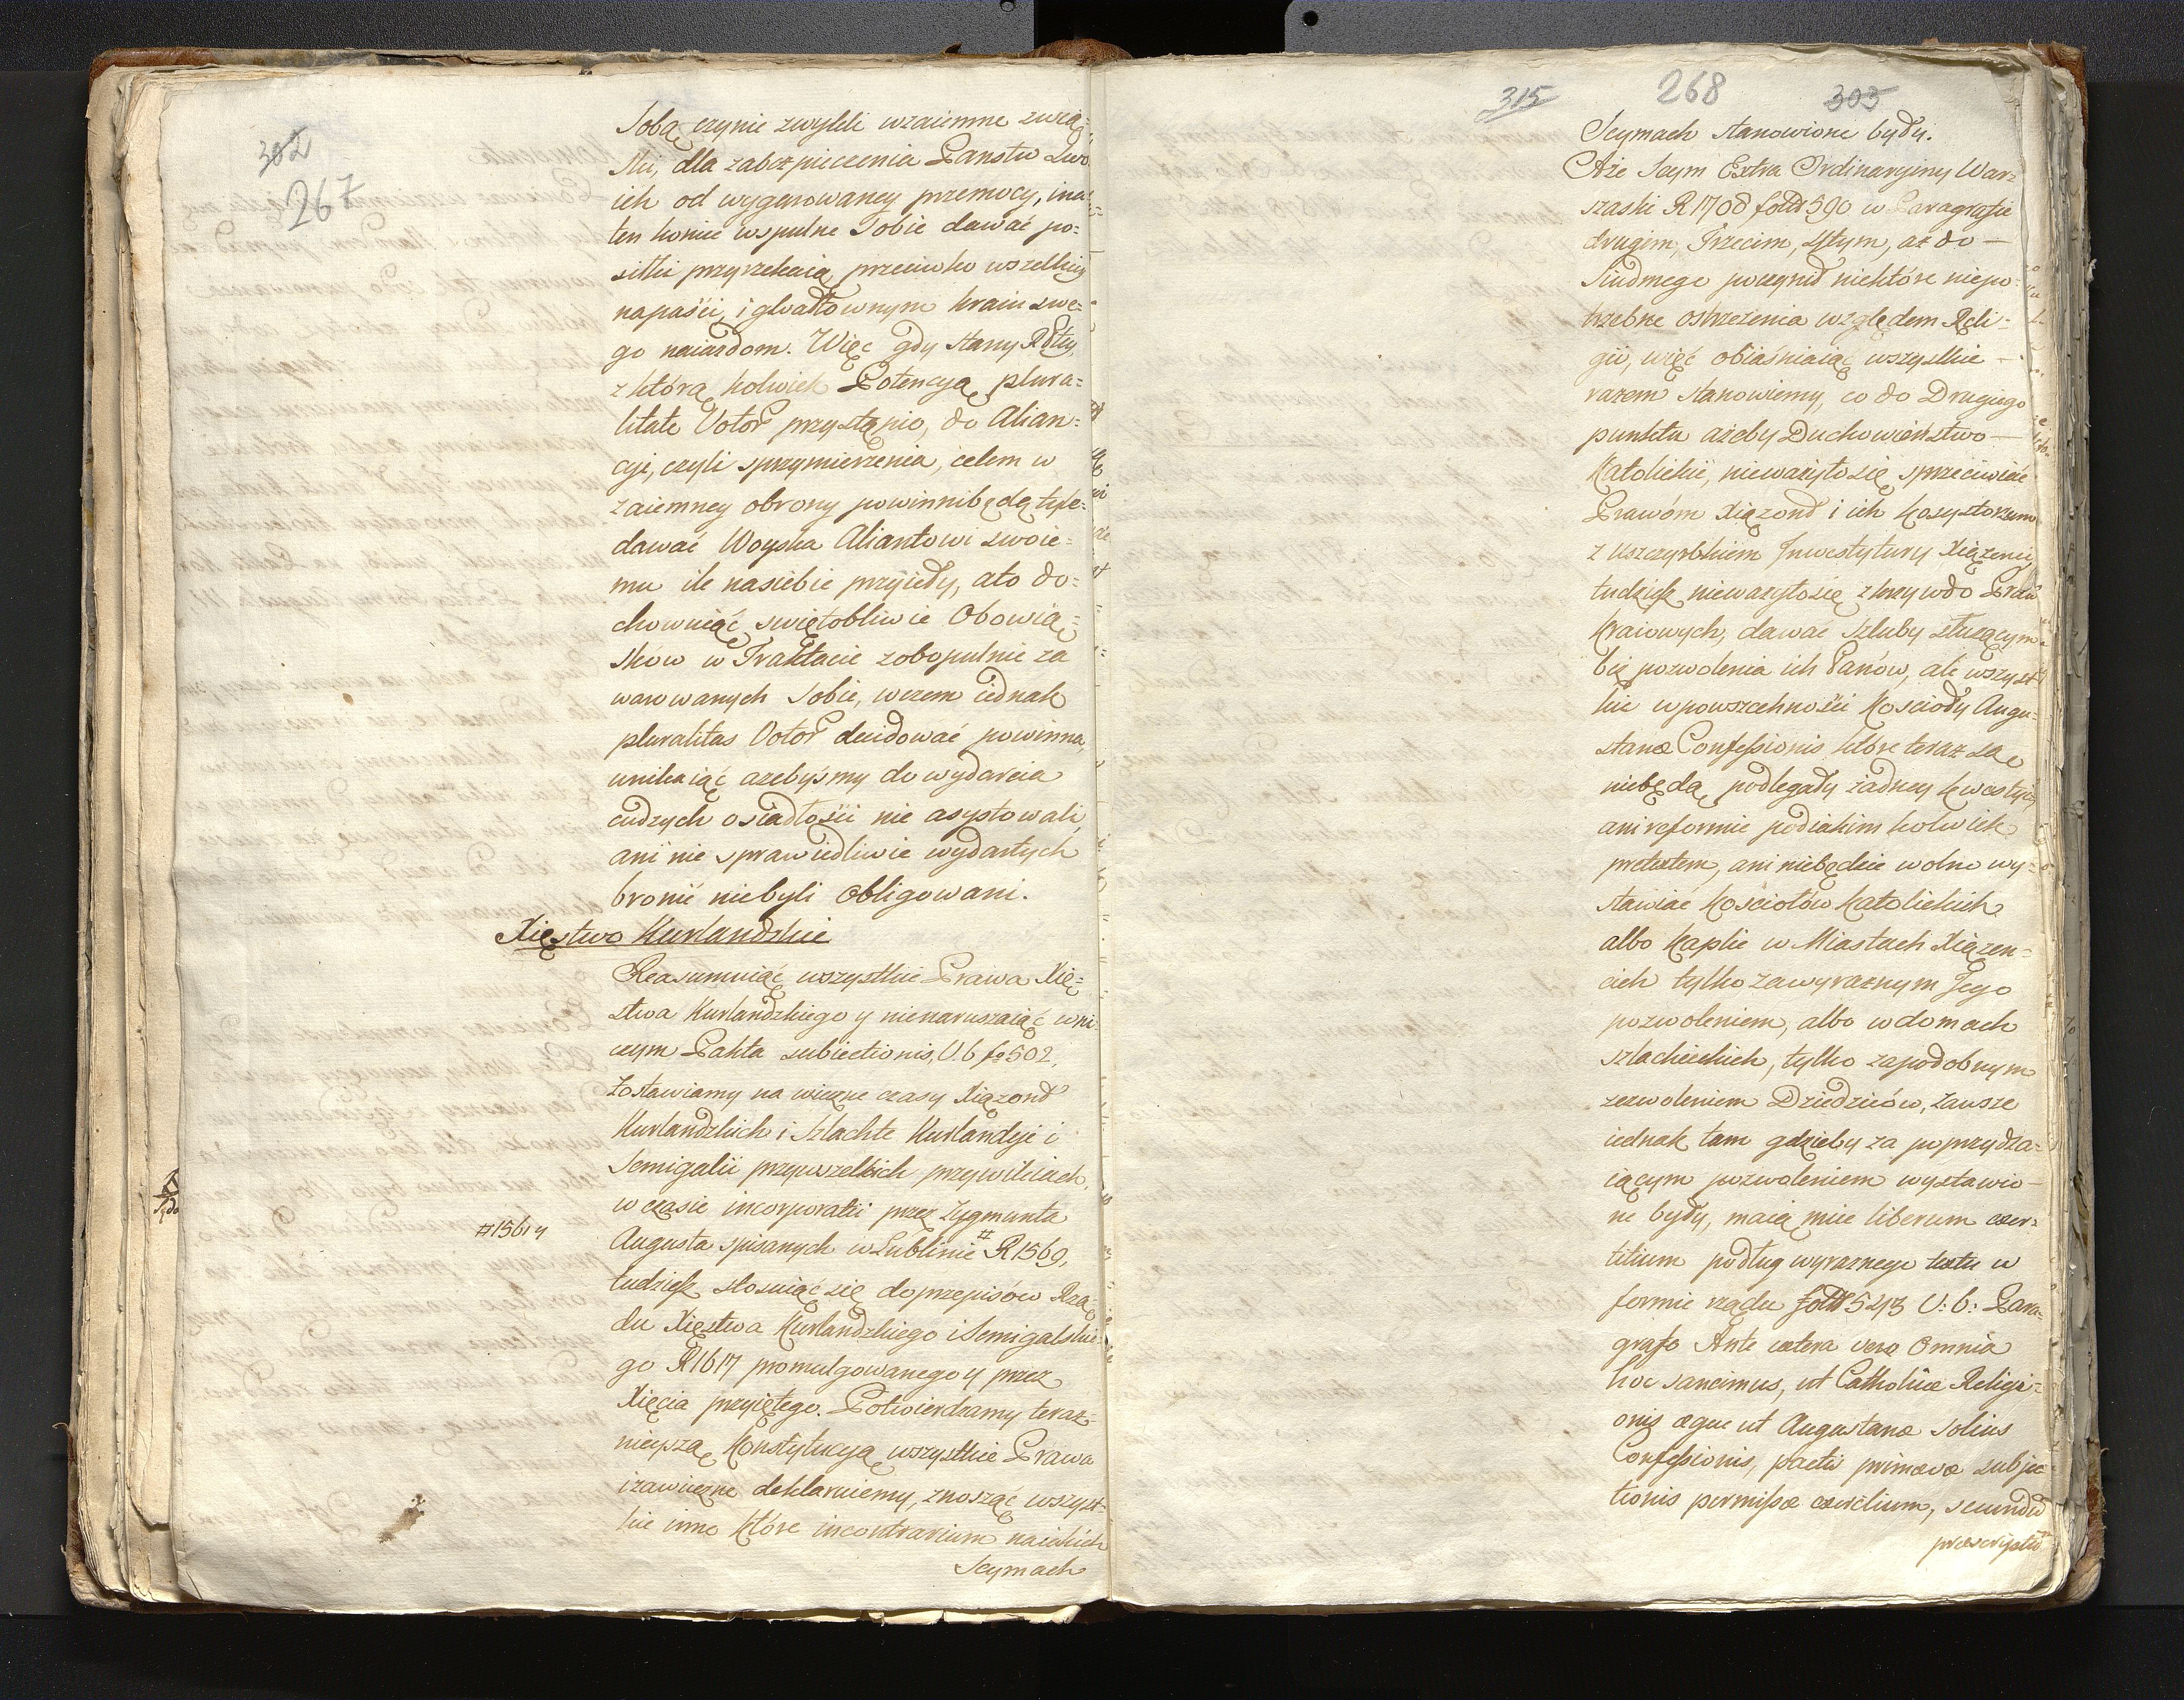 302
267
Sobą czynic zwykli wzaiemne zwią=
ski, dla zabezpieczenia Panstw Swo
ich od wygurowaney przemocy, ina
ten koniec wspulne Sobie dawać po=
siłki przyrzekaią przeciwko wszelkiey
napaści, i gwałtownym kraiu swe=
go naiazdom. Więc gdy Stany Rptey
z którą kolwiek Potencyą plura=
litate Votor przystąpio, do Alian=
cyi, czyli sprzymierzenia, celem w
zaiemney obrony powinni będą tyle=
dawać Woyska Aliantowi swoie=
mu ile nasiebie przyiedy, a to do=
chowuiąć swiętobliwie Obowią=
skow w Traktacie zobopulnie za
warowanych Sobie, wczem iednak
pluralitas Votor decidować powinna,
unikaiąć azebyśmy do wydarcia
cudzych osiadłości nie asystowali,
ani nie sprawiedliwie wydartych
bronić niebyli obligowani.
Xięstwo Kurlandzkie
Reasumuiąc wszystkie Prawa Xię=
stwa Kurlandzkiego y nienaruszaiąć wni
czym Pakta subiectionis, V. 6 fo 502,
zostawiamy na wieczne czasy Xiązond
Kurlandzkich i Szlachte Kurlandyi i
Semigalii przywszelkich przywileiach,
w czasie incorporatii przez Zygmunta
#1561 y
Augusta spisanych w Lublinie # R 1569,
tudzież stosuiąć się do przepisów Rzą
du Xięstwa Kurlandzkiego i Semigalskie
go R 1617 promulgowanego y przez
Xięcia przyiętego. Potwierdzamy teraz=
nieyszą Konstytucyą wszystkie Prawa
izawieczne deklaruiemy, znosząć wszyst=
kie inno które incontrarium naiakich
Seymach
315
268
303
Seymach stanowione były.
Aże Seym Extra Ordinaryiny War=
szaski R 1768 folio 390 w Paragrafie
drugim, Trzecim, 4tym, aż do —
Siudmego poczynił niektóre niepo=
trzebne ostrzeżenia względem Reli=
gii, więć obiaśniaiąc wszystkie —
razem stanowiemy, co do Drugiego
punktu ażeby Duchowieństwo —
Katolickie, nieważyło się sprzeciwiać
Prawóm Xiązond i ich Kosystorzum
z uszczyrbkiem Inwestytury Xiązencey
tudzież nieważyło się zkrzywdo Praw
Kraiowych, dawać szluby służącym
bez pozwolenia ich Panów, ale wszyst
kie wpowszechności Kosciody Augu=
stanæ Confessionis które teraz są
niebędą podlegały żadney kwestyi,
ani reformie podiakim kolwiek
pretextem, ani niebędzie wolno wy=
stawiać Kościołów Katolickich
albo Kaplic w Miastach Xiązen=
cich tylko zawyraznym Jego
pozwoleniem, albo w domach
szlacheckich, tylko zapodobnym
zezwoleniem Dziedziców, zawsze
iednak tam gdzieby za poprzydza=
iącym pozwoleniem wystawio —
ne były, maią mieć liberum exer=
titium podług wyraznego textu w
formie rządu folio 543 V: 6: Para=
grafo Ante cætera vero omnia
hoc sancimus, ut Catholicæ Religi=
onis æque ut Augustanæ solius
Confessionis, pactis primævæ subjec
tionis permissæ exercitium, secundū
præscriptū